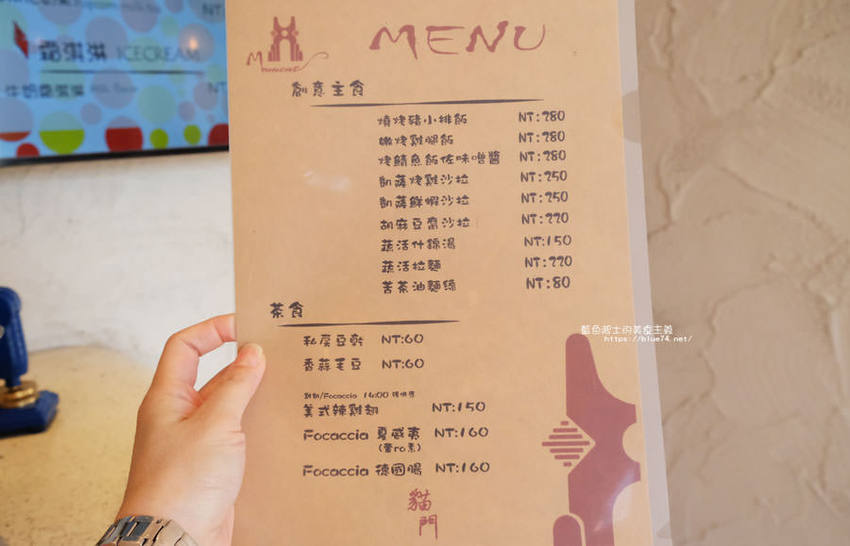 霜淇淋 ICECREAM
NT
MENU
創意主食
燒烤豬小排飯 NT:280
嫩烤雞腿飯 NT:280
烤鯖魚飯佐味噌醬 NT:280
凱薩烤雞沙拉 NT:250
凱薩鮮蝦沙拉 NT:250
胡麻豆腐沙拉 NT:220
蔬活什錦湯 NT:150
蔬活拉麵 NT:220
苦茶油麵線 NT:80
茶食
私房豆乾 NT:60
香蒜毛豆 NT:60
雞翅/Focaccia 14:00
美式辣雞翅 NT:150
Focaccia 夏威夷 NT:160
(蛋ro素)
Focaccia 德國腸 NT:160
貓門
藍色起士的美食主義
https://blue74.net/